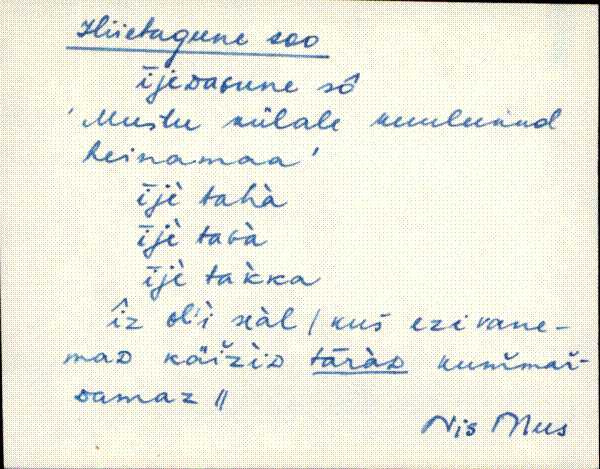 Hiietagune soo
ījeᴅaɢune sō̂
'Mustu külale kuulunud
heinamaa'
ījè tahà
ījè taɢà
ījè tàkka
îz ol'i sèàl / kuš ezivane-
maᴅ käižìᴅ tāràᴅ kummar̆-
ᴅamaz //
Nis Mus